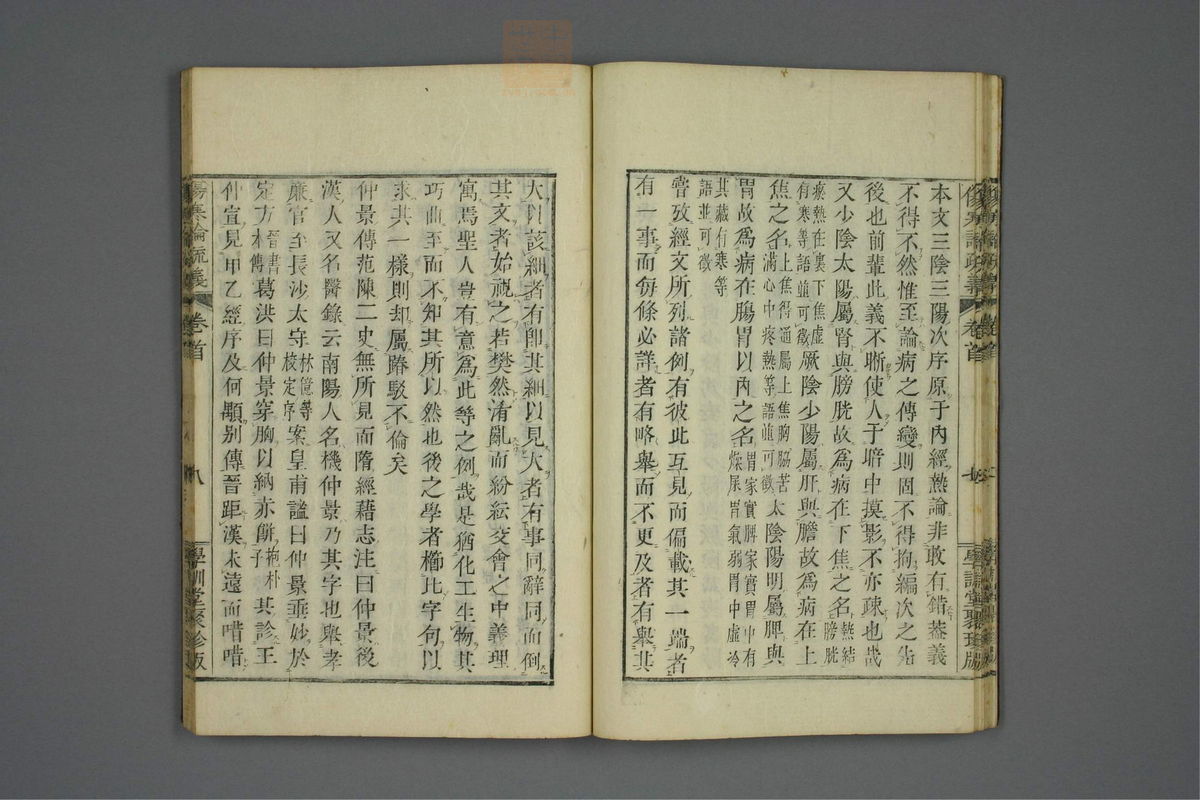 本文三陰三陽次序原于內經熱論非敢有錯葢義
不得不然惟至論病之傳變則固不得拘編次之先
後也前輩此義不晰使人于暗中摸影不亦疎也哉
又少陰太陽屬腎與膀胱故爲病在下焦之名熱結膀胱
瘀熱在裏下焦虛有寒等語並可徵厥陰少陽屬肝與膽故爲病在上
焦之名上焦得通屬上焦胸脇苦滿心中疼熱等語並可徵太陰陽明屬脾與
胃故爲病在膓胃以內之名胃家實脾家實胃中有燥屎胃氣弱胃中虛冷
其藏有寒等語並可徵
嘗攷經文所列諸例有彼此互見而偏載其一端者
有一事而每條必詳者有略舉而不更及者有舉其
傷寒論疏義 卷首 七 學訓堂聚珍版
大以該細者有卽其細以見大者有事同辭同而倒
其文者始視之若樊然淆亂而紛紜交會之中義理
寓焉聖人豈有意爲此等之例哉是猶化工生物其
巧曲至而不知其所以然也後之學者櫛比字句以
求其一樣則却屬踳駁不倫矣
仲景傳范陳二史無所見而隋經藉志注曰仲景後
漢人又名醫錄云南陽人名機仲景乃其字也舉孝
廉官至長沙太守林億等校定序案皇甫謐曰仲景垂妙於
定方晉書本傳葛洪曰仲景穿胸以納赤餅抱朴子其診王
仲宣見甲乙經序及何顒别傳晉距漢未遠而嘖嘖
傷寒論疏義 卷首 八 學訓堂聚珍版